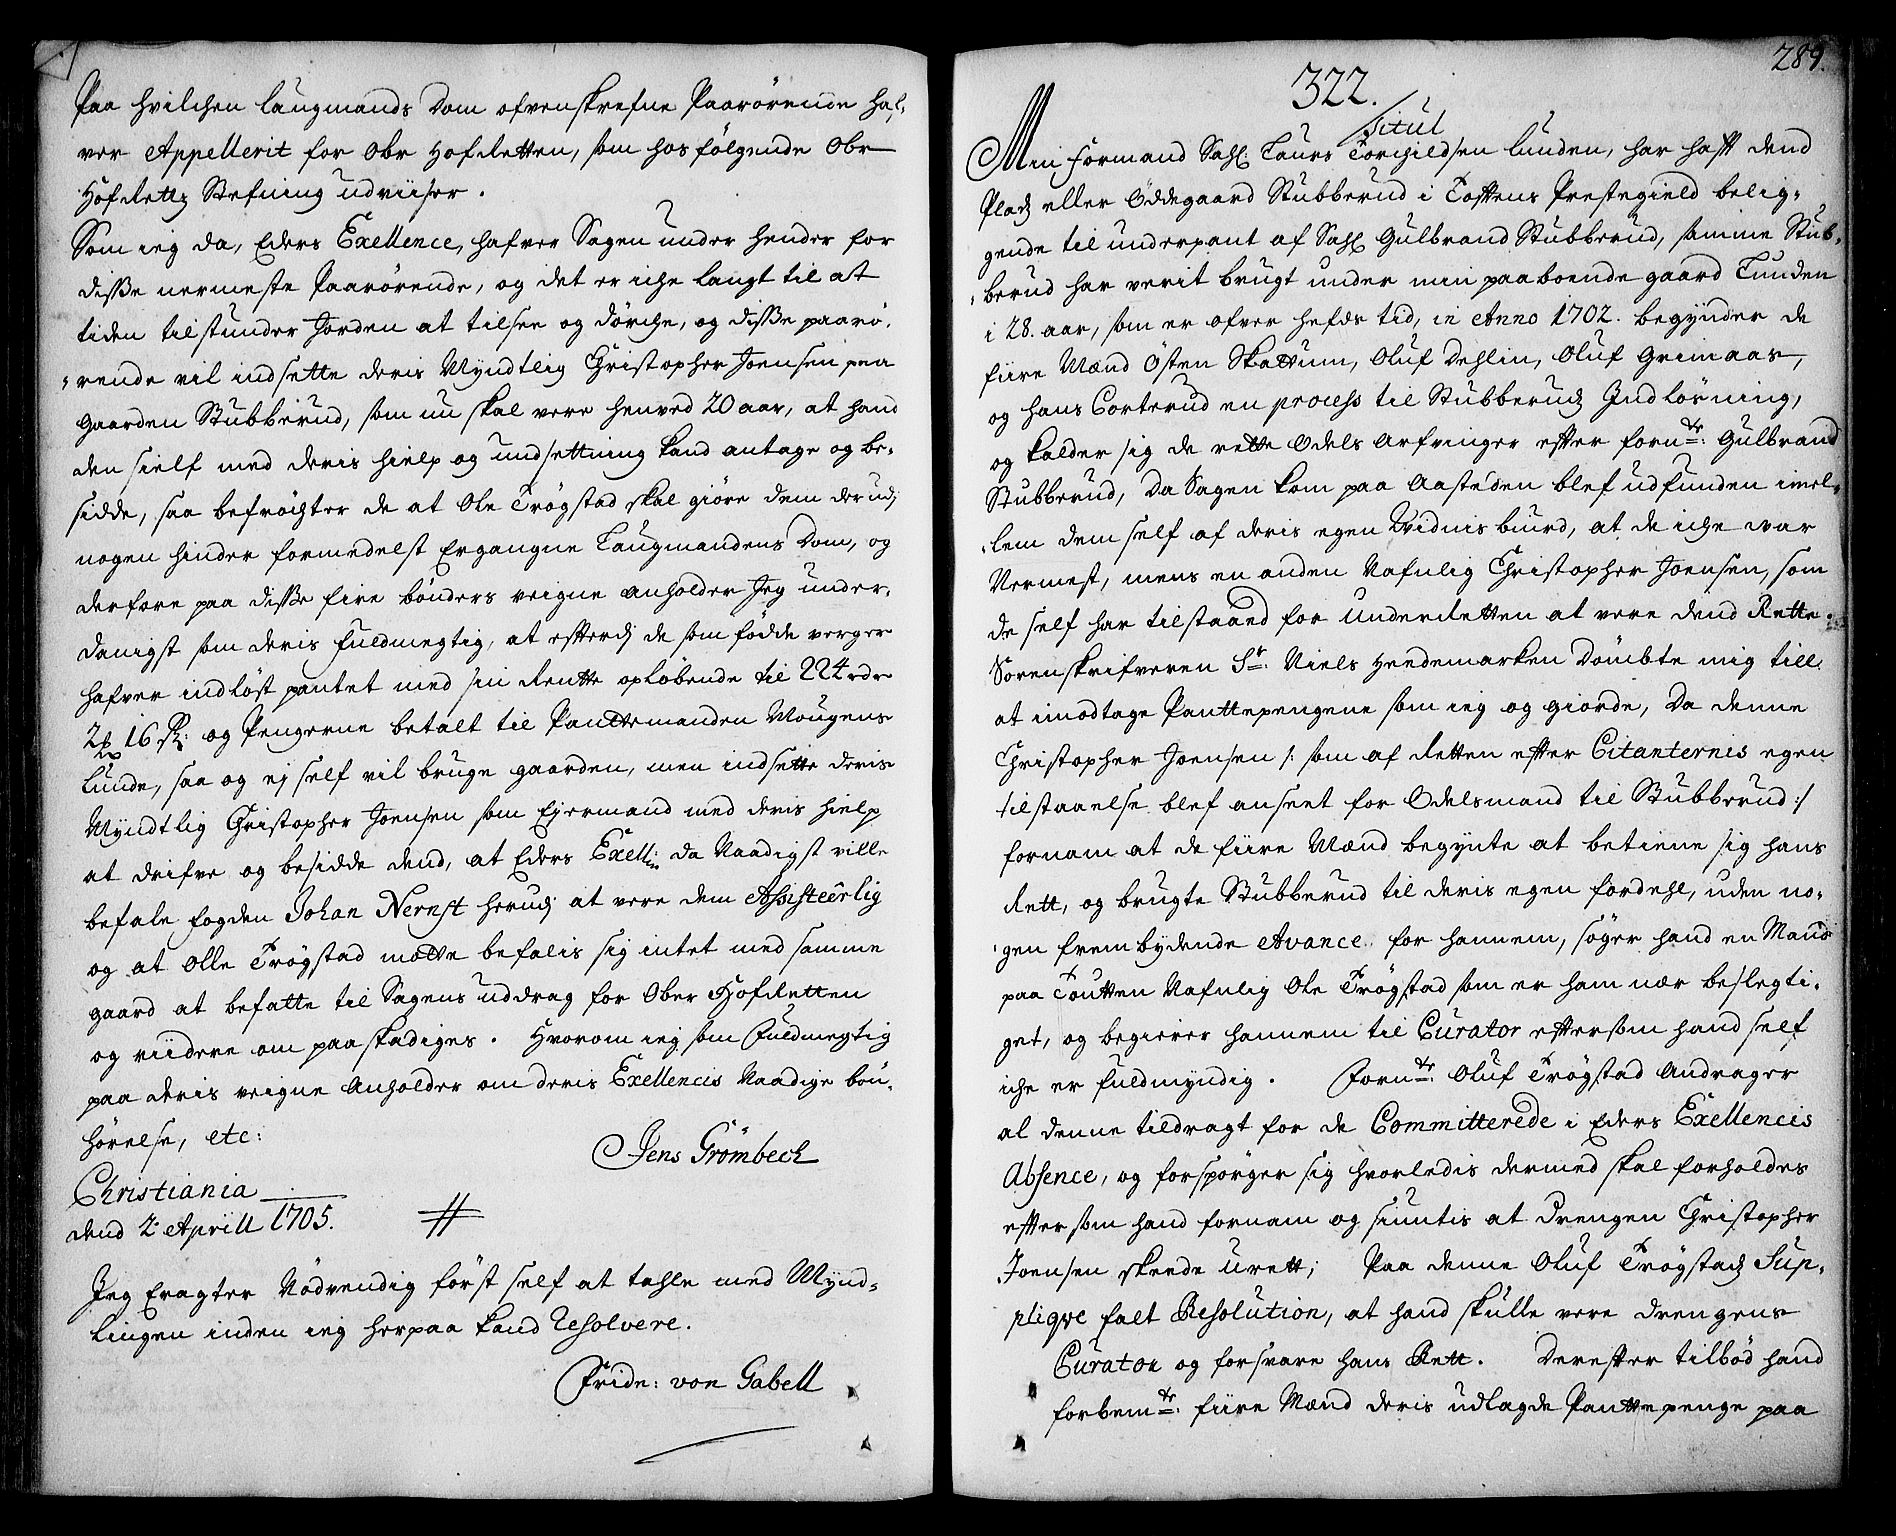 Paa hvilchen laugmands Dom ofvenskrefne Paarörende haf,
ver Appellerit for Obr Hofretten, som hos fölgende Obr
Hofretts Stefning udviiser.
Som ieg da, Eders Exellence, hafver Sagen under hender for
disse nermeste Paarörende, og det er iche langt til at
tiden tilstunder Jorden at tilsee og dörche, og disse paarö,
rende vil indsette deris Myndtlig Christopher Joensen paa
gaarden Stubberud, som nu skal vere henved 20 aar, at hand
den sielf med deris hielp og undsettning kand antage og be,
sidde, saa befröchter de at Ole Trögstad skal giöre dem derudj
nogen hinder formedelst Ergangne Laugmandens Dom, og
derfore paa disse fire bönders veigne anholder Jeg under,
danigst som deris fuldmegtig, at efterdj de som födde verger
hafver indlöst pantet med sin Rentte oplöbende til 224 rdr
2 16 sk: og Pengerne betalt til Panttemanden Mougens
Lunde, saa og ej self vil bruge gaarden, men indsette deris
Myndtlig Christopher Joensen som Eyermand med deris hielp
at drifve og besidde dend, at Eders Exell: da Naadigst ville
befale fogden Johan Nernst herudj at vere dem Assisteerlig
og at Olle Trögstad motte befalis sig intet med samme
gaard at befatte til Sagens uddrag for Ober Hofretten
og viidere om paaskadiges. Hvorom ieg som Fuldmegtig
paa deris veigne anholder om deris Exellencis Naadige bön,
hörelse, etc:
Jens Grömbech
Christiania
dend 2 Aprill 1705.
Jeg Eragter Nödvendig först self at tahle med Mynd,
lingen inden ieg herpaa kand Resolvere.
Fride: von Gabell
289.
322.
Titul
Min Formand Sahl Laurs Torchildsen lunden, har haft dend
Plads eller Öddegaard Stubberud i Tottens Prestegield belig,
gende til underpant af Sahl Gulbrand Stubberud, samme Stub,
berud har verit brugt under min paaboende gaard Lunden
i 28. aar, som er ofver hefds tid, in Anno 1702. begynder de
fiire Mænd Östen Skattum, Oluf Dehlin, Oluf Grimaas,
og hans Corterud en process til Stubberuds Indlösning,
og kalder sig de rette Odels Arfvinger efter fornte: Gulbrand
Stubberud, Da Sagen kom paa Aasteden blef udfunden imel,
lem dem self af deris egen Vidnisbiurd, at de iche war
Nermest, mens en anden Nafnlig Christopher Joensen, som
de self har tilstaaed for Underretten at vere dend Rette.
Sorenskrifveren Sr: Niels Heedemarken Dömbte mig till
at imodtage Panttepengene som ieg og giorde, Da denne
Christopher Joensen /: som af Retten efter Citanternis egen
tilstaaelse blef anseet for Odelsmand til Stubberud :/
fornam at de fiire Mænd begynte at betiene sig hans
Rett, og brugte Stubberud til deris egen fordehl, uden no,
gen frembydende Avance for hannem, söger hand en Mand
paa Toutten Nafnlig Ole Trögstad som er ham nær beslegti,
get, og begierer hannem til Curator eftersom hand self
iche er fuldmyndig. Fornte: Oluf Trögstad Andrager
al denne tildragt for de Committerede i Eders Exellencis
Absence, og forspörger sig hvorledis dermed skal forholdes
eftersom hand fornam og siuntis at Drengen Christopher
Joensen skeede Urett; Paa denne Oluf Trögstads Sup,
plique falt Resolution, at hand skulle vere drengens
Curator og forsvare hans Rett. Derefter tilböd hand
forbemte: fiire Mænd deris udlagde Panttepenge paa